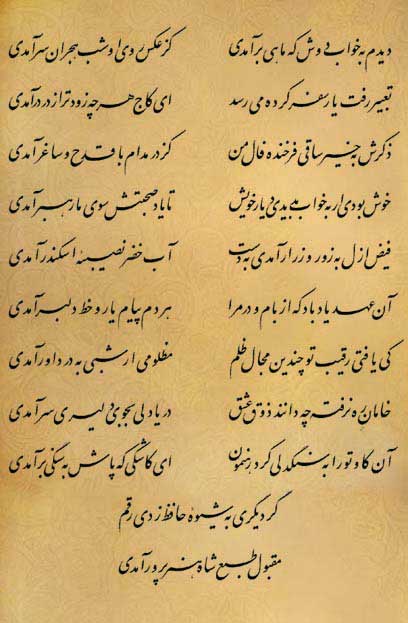 دیدم به خواب دوش که ماهی برآمدی کز عکس روی او شب هجران سر آمدی
تعبیر رفت یار سفر کرده می رسد ای کاج هر چه زودتر از در درآمدی
ذکرش به خیر ساقی فرخنده فال من کز در مدام با قدح و ساغر آمدی
خوش بودی ار به خواب بدیدی دیار خویش تا یاد صحبتش سوی ما رهبر آمدی
فیض ازل به زور و زر ار آمدی به دست آب خضر نصیبهٔ اسکندر آمدی
آن عهد یاد باد که از بام و در مرا هر دم پیام یار و خط دلبر آمدی
کی یافتی رقیب تو چندین مجال ظلم مظلومی ار شبی به در داور آمدی
خامان ره نرفته چه دانند ذوق عشق دریادلی بجوی دلیری سرآمدی
آن کاو تو را به سنگدلی کرد رهنمون ای کاشکی که پاش به سنگی برآمدی
گر دیگری به شیوهٔ حافظ زدی رقم
مقبول طبع شاه هنرپرور آمدی